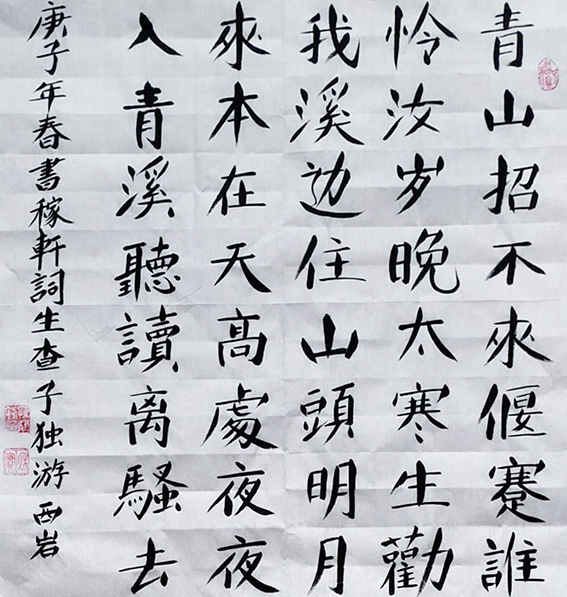 青山招不來偃蹇誰
怜汝岁晚太寒生勸
我溪边住山頭明月
來本在天高處夜夜
入青溪聽讀离騷去
庚子年春書稼軒詞生查子独游西岩